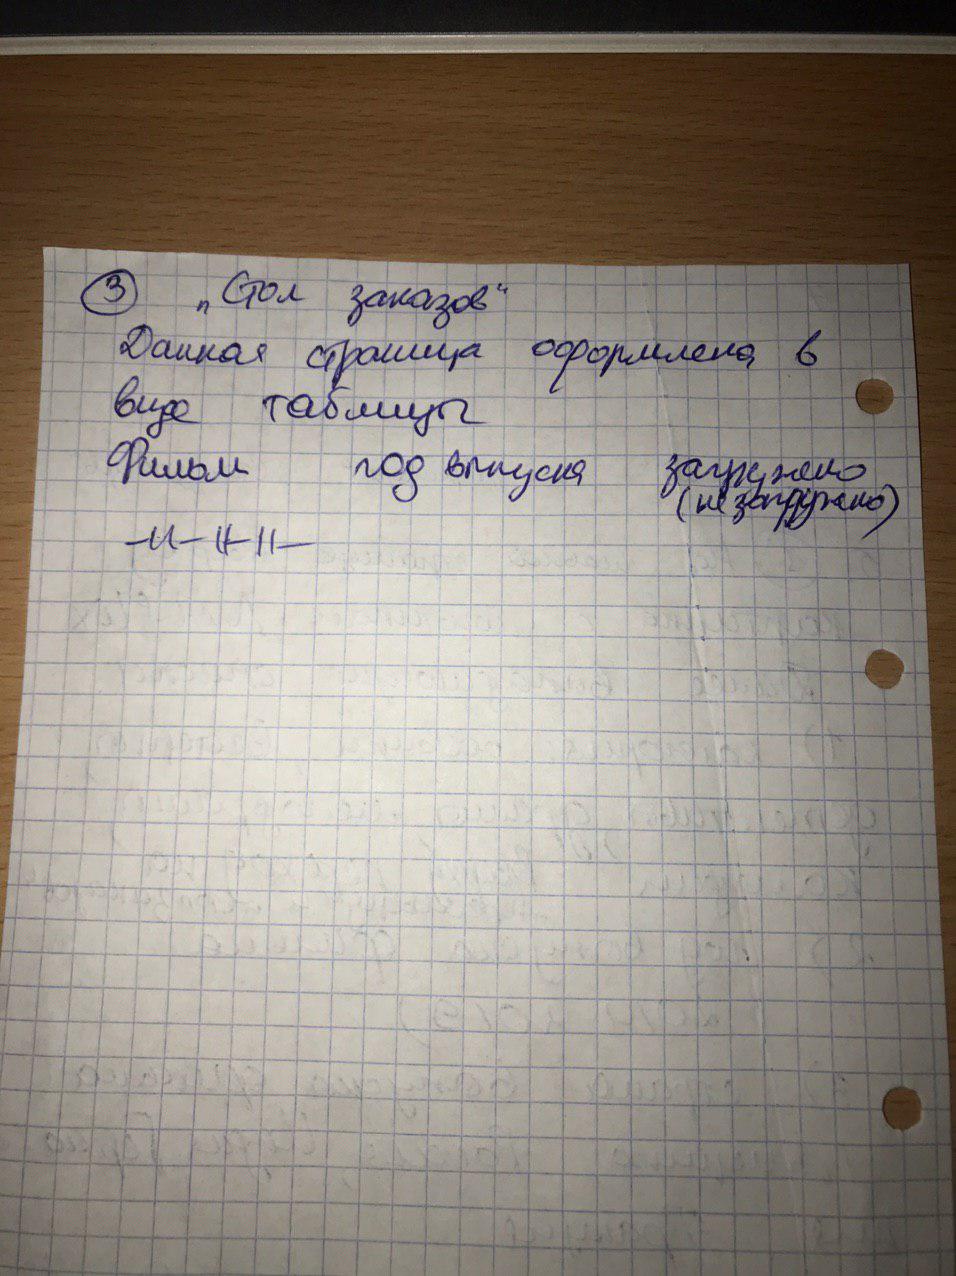 3 „Стол заказов“
Данная страница оформлена в
виде таблицы
Фильм год выпуска загружено
(не загружено)